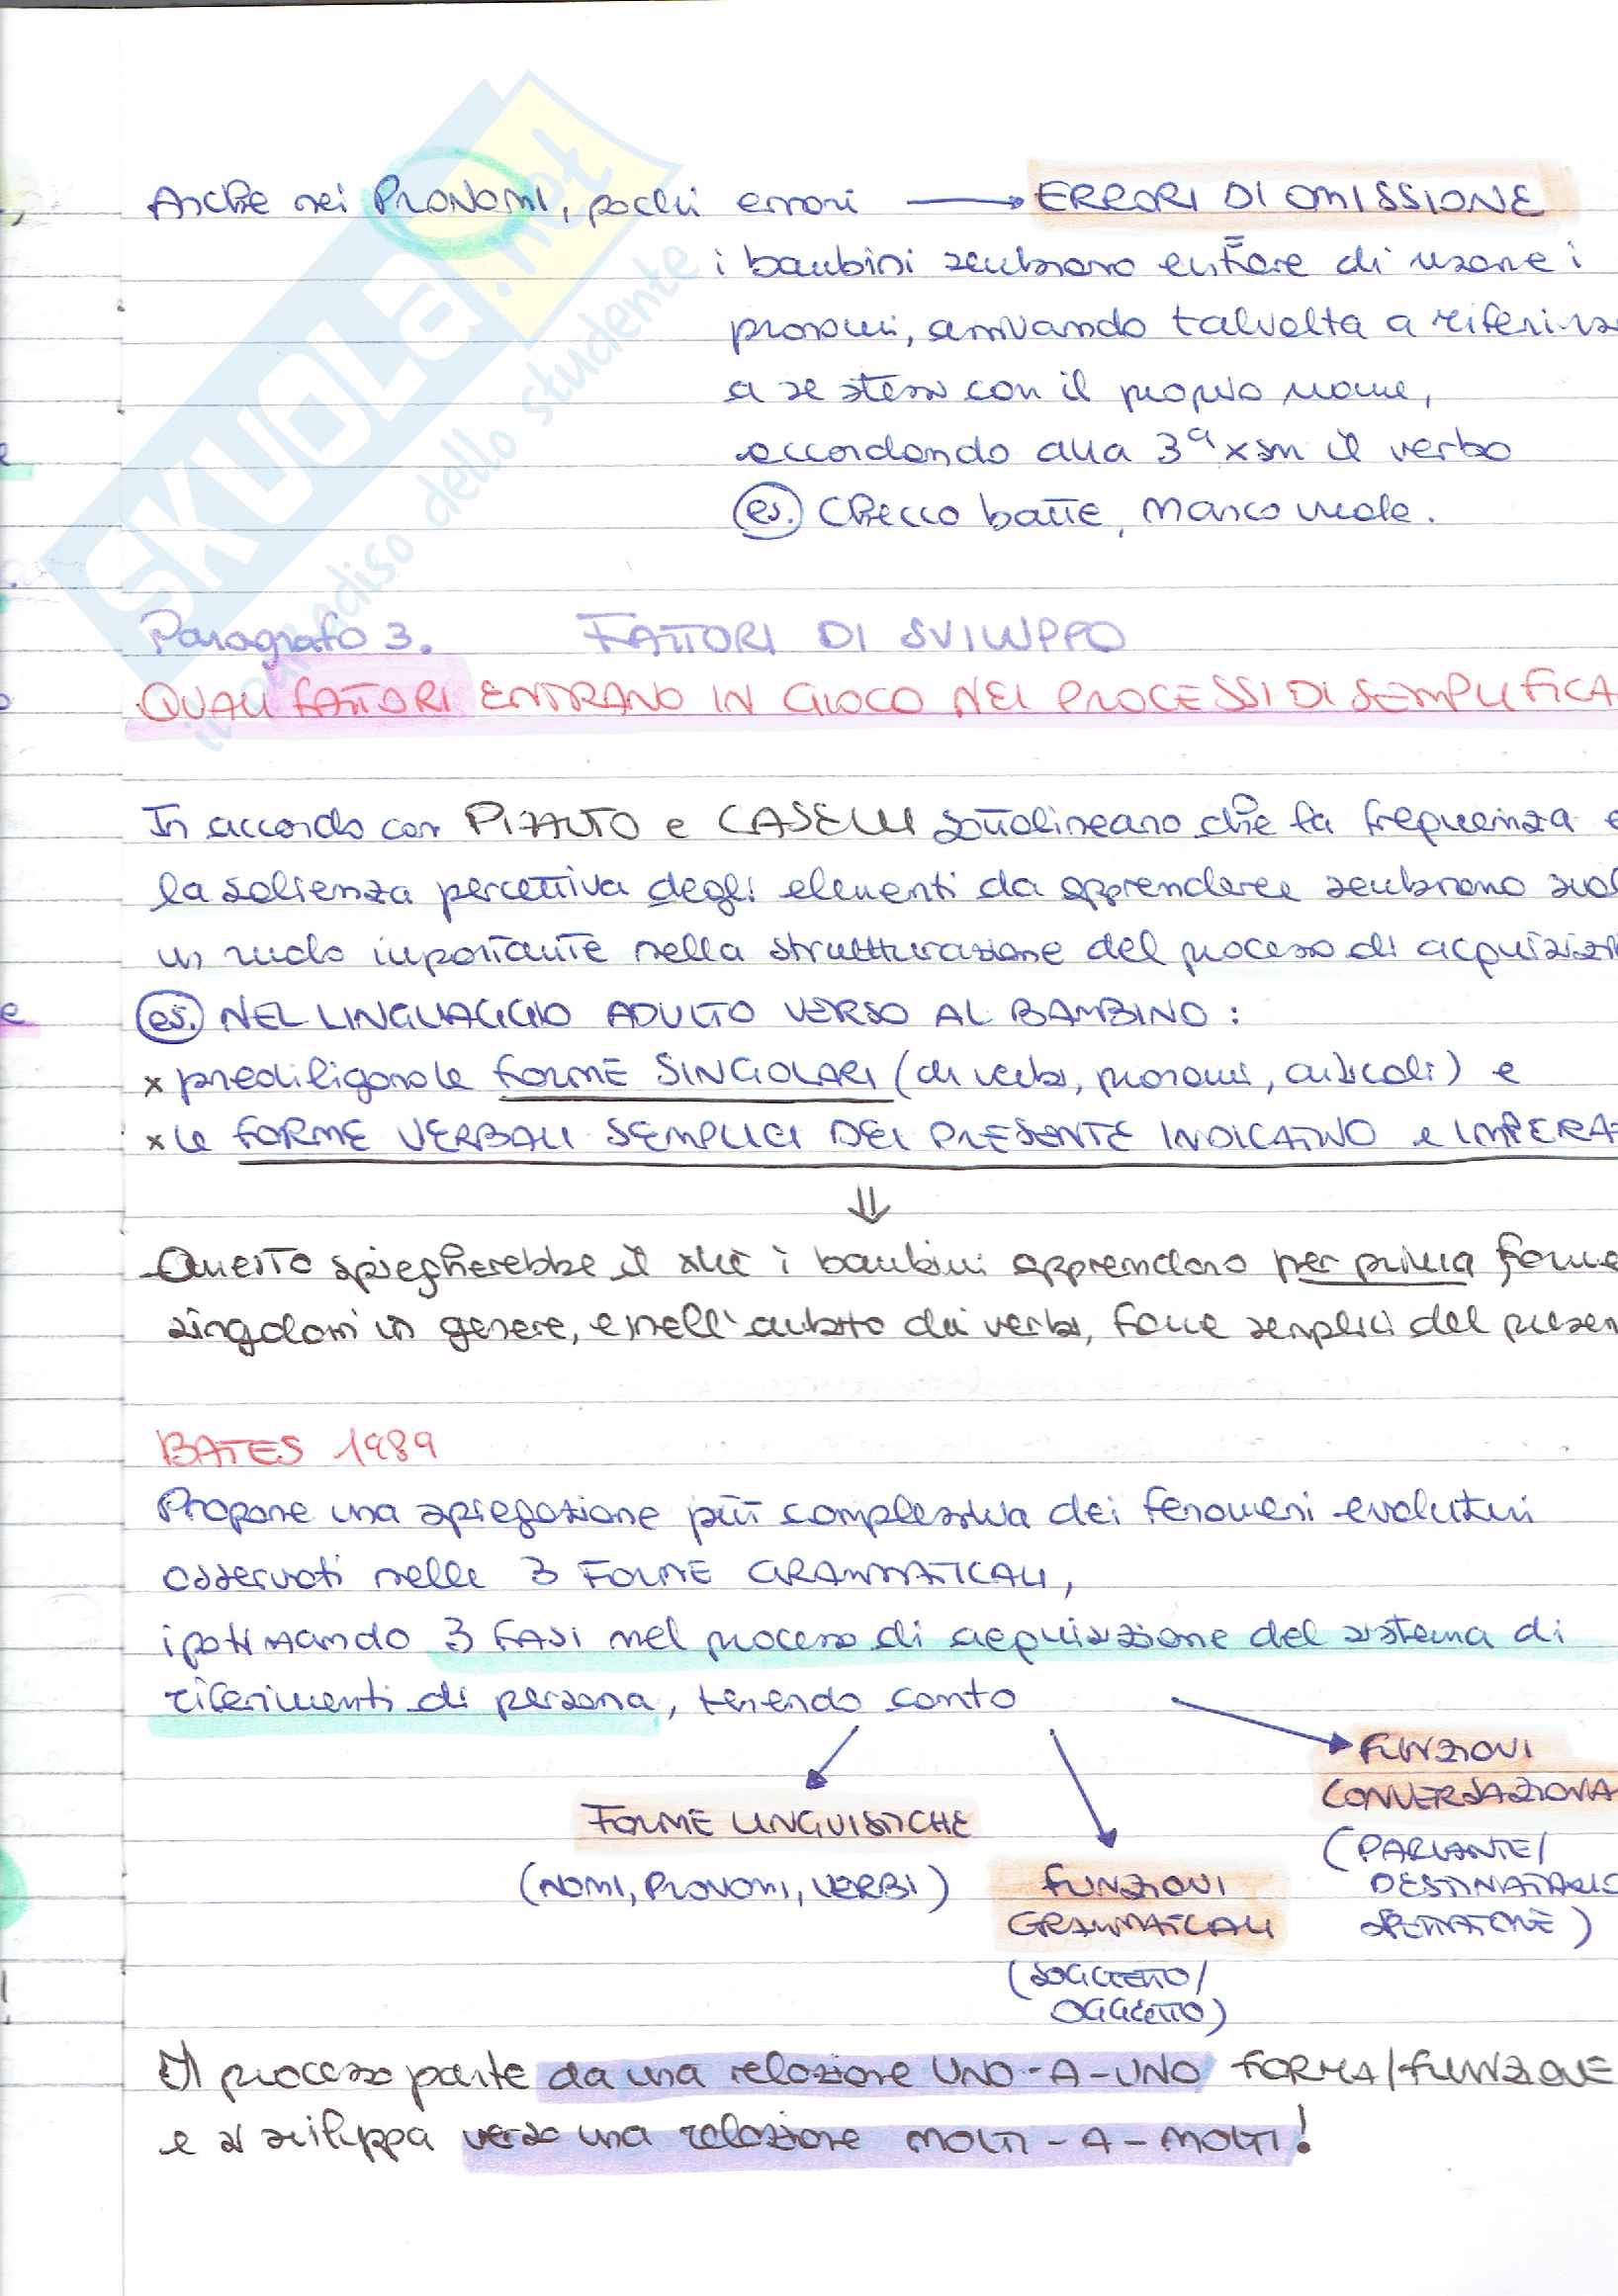 SKUOLA.net
il paradiso dello studente
Anche nei PRONOMI, pochi errori → ERRORI DI OMISSIONE
i bambini sembrano evitare di usare i
pronomi, arrivando talvolta a riferirs
a se stessi con il proprio nome,
accordando alla 3ª xsn il verbo
es. Checco batte, Marco vuole.
Paragrafo 3. FATTORI DI SVILUPPO
QUALI FATTORI ENTRANO IN GIOCO NEI PROCESSI DI SEMPLIFICA
In accordo con PIZZUTO e CASELLI sottolineano che la frequenza e
la salienza percettiva degli elementi da apprendere sembrano svol
un ruolo importante nella strutturazione del processo di acquisizion
es. NEL LINGUAGGIO ADULTO VERSO AL BAMBINO:
x prediligono le FORME SINGOLARI (di verbi, pronomi, articoli) e
x le FORME VERBALI SEMPLICI DEL PRESENTE INDICATIVO e IMPERA
⇓
Questo spiegherebbe il xké i bambini apprendono per prima forme
singolari in genere, e nell'ambito dei verbi, forme semplici del presen
BATES 1989
Propone una spiegazione più complessiva dei fenomeni evolutivi
osservati nelle 3 FORME GRAMMATICALI,
ipotizzando 3 FASI nel processo di acquisizione del sistema di
riferimenti di persona, tenendo conto
FORME LINGUISTICHE
(NOMI, PRONOMI, VERBI)
FUNZIONI
GRAMMATICALI
(SOGGETTO/
OGGETTO)
FUNZIONI
CONVERSAZIONA
(PARLANTE/
DESTINATARIO
SPETTATORE)
Il processo parte da una relazione UNO-A-UNO FORMA/FUNZIONE
e si sviluppa verso una relazione MOLTI-A-MOLTI!